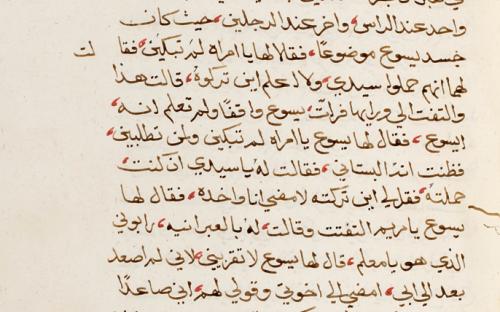 واحد عند الراس، واخر عند الرجلين، حيث كان
جسد يسوع موضوعًا، فقالا لها يا امراه لم تبكين، فقا
لت
لهما انهم حملوا سيدي، ولا اعلم اين تركوه، قالت هذا
والتفتت الي ورايها فرات يسوع واقفًا ولم تعلم انه
يسوع، فقال لها يسوع يا امراه لم تبكين ولمن تطلبين،
فظنت انه البستاني، فقالت له يا سيدي ان كنت
حملته، فقل لي اين تركته لامضي انا واخده، فقال لها
يسوع يا مريم التفتت وقالت له بالعبرانيه، رابوني
الذي هو يا معلم، قال لها يسوع لا تقربيني لاني لم اصعد
بعد الي ابي، امضي الي اخوتي وقولي لهم، اني صاعدًا